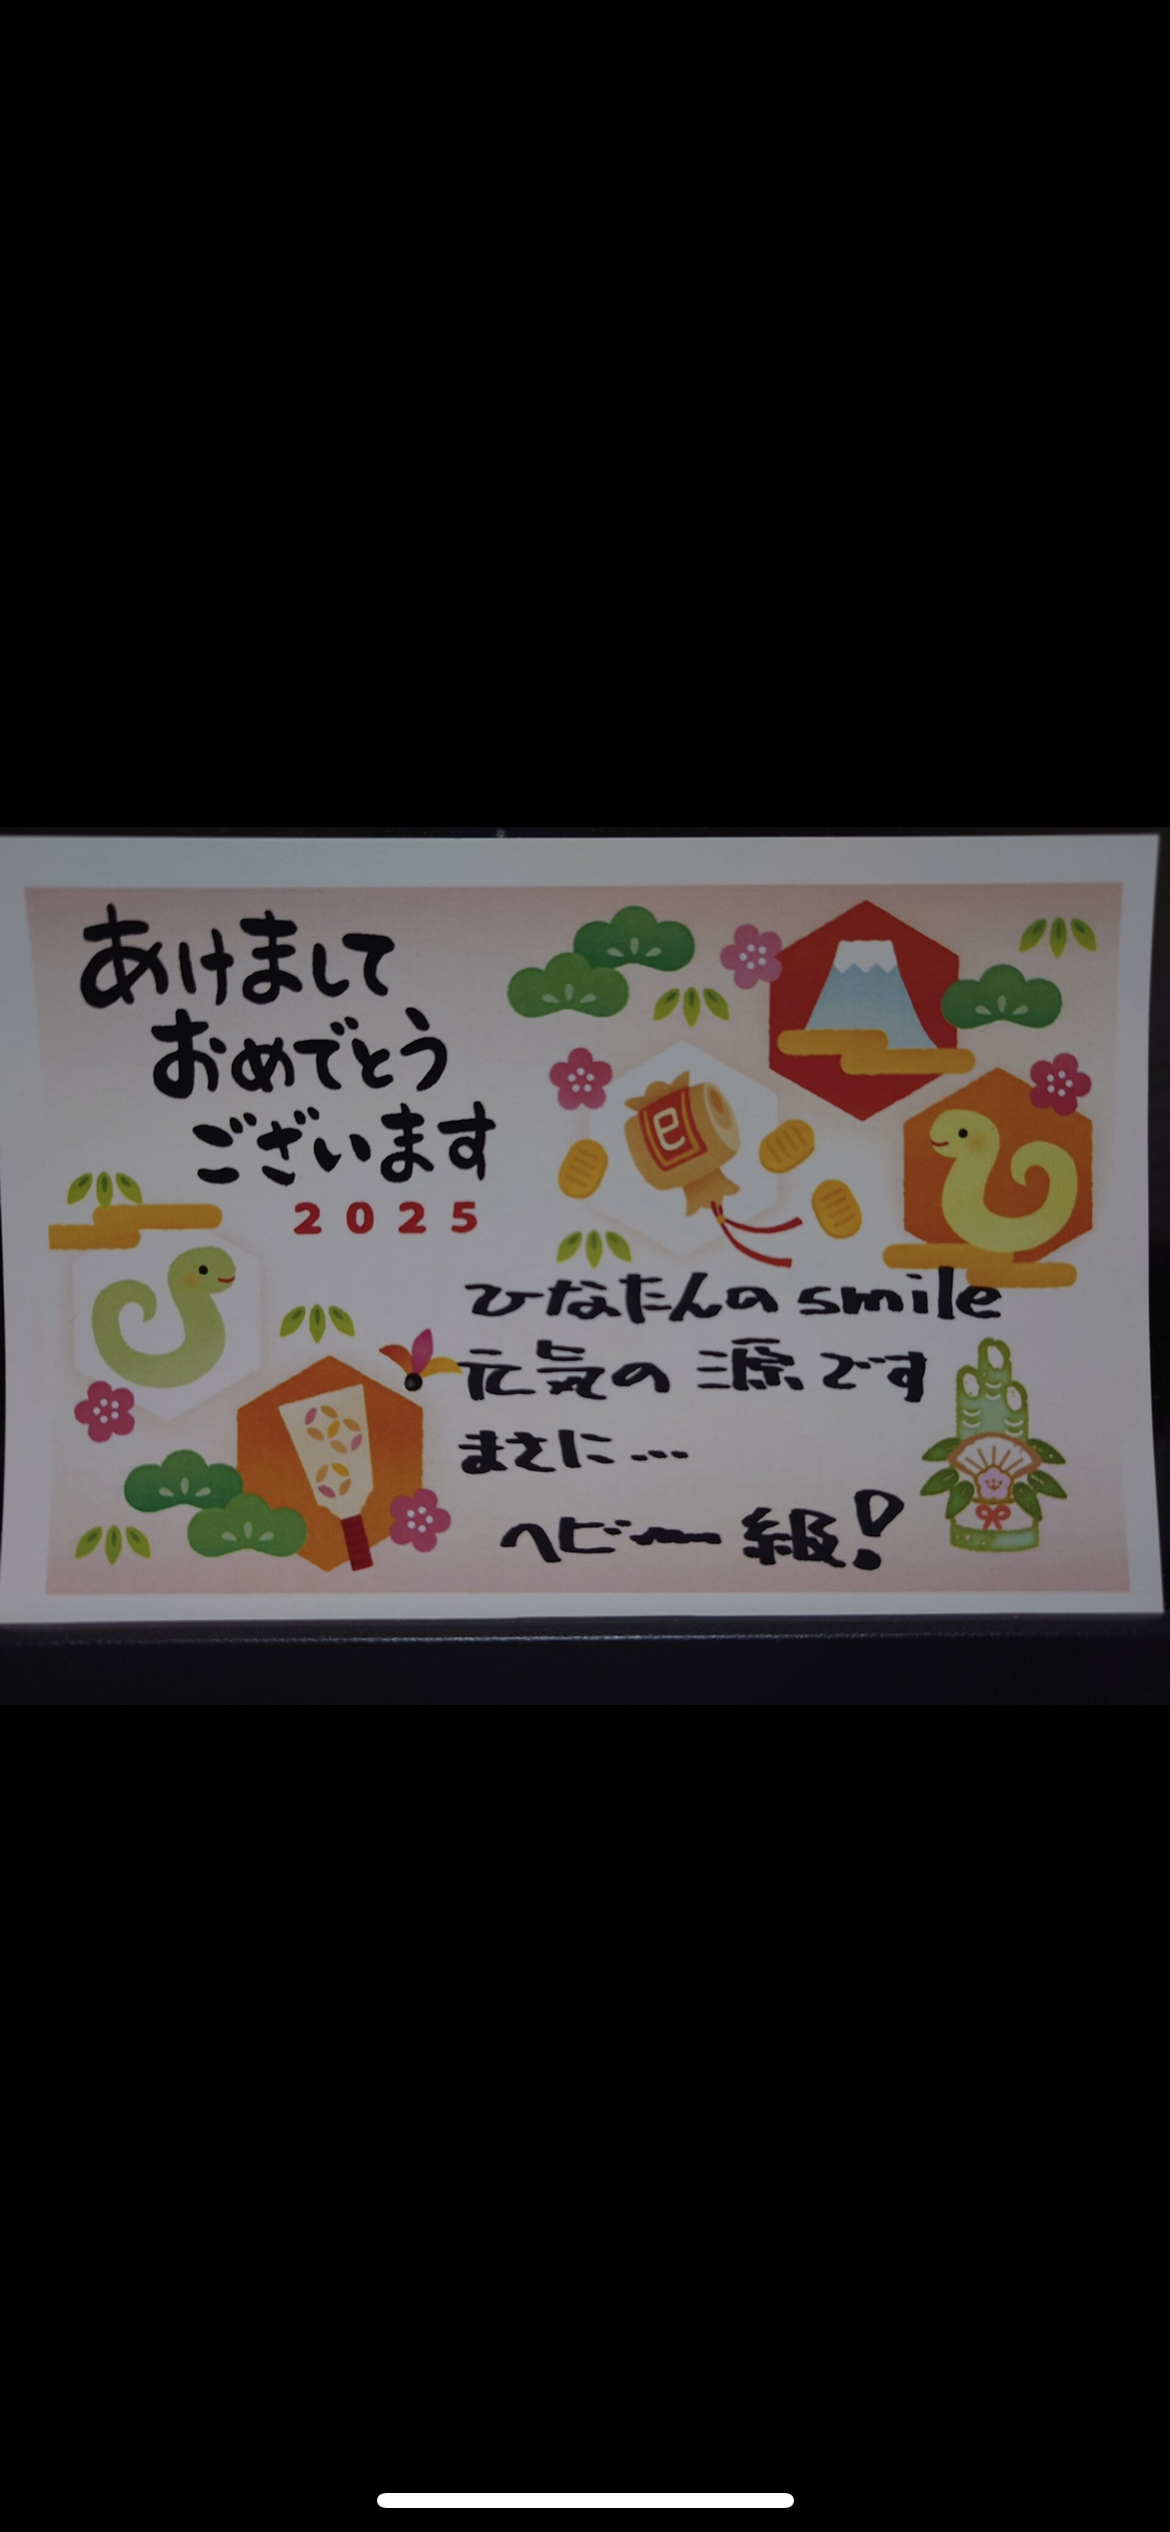 あけまして
おめでとう
ございます
2025
巳
ひなたんの smile
元気の源です
まさに…
ヘビー級!